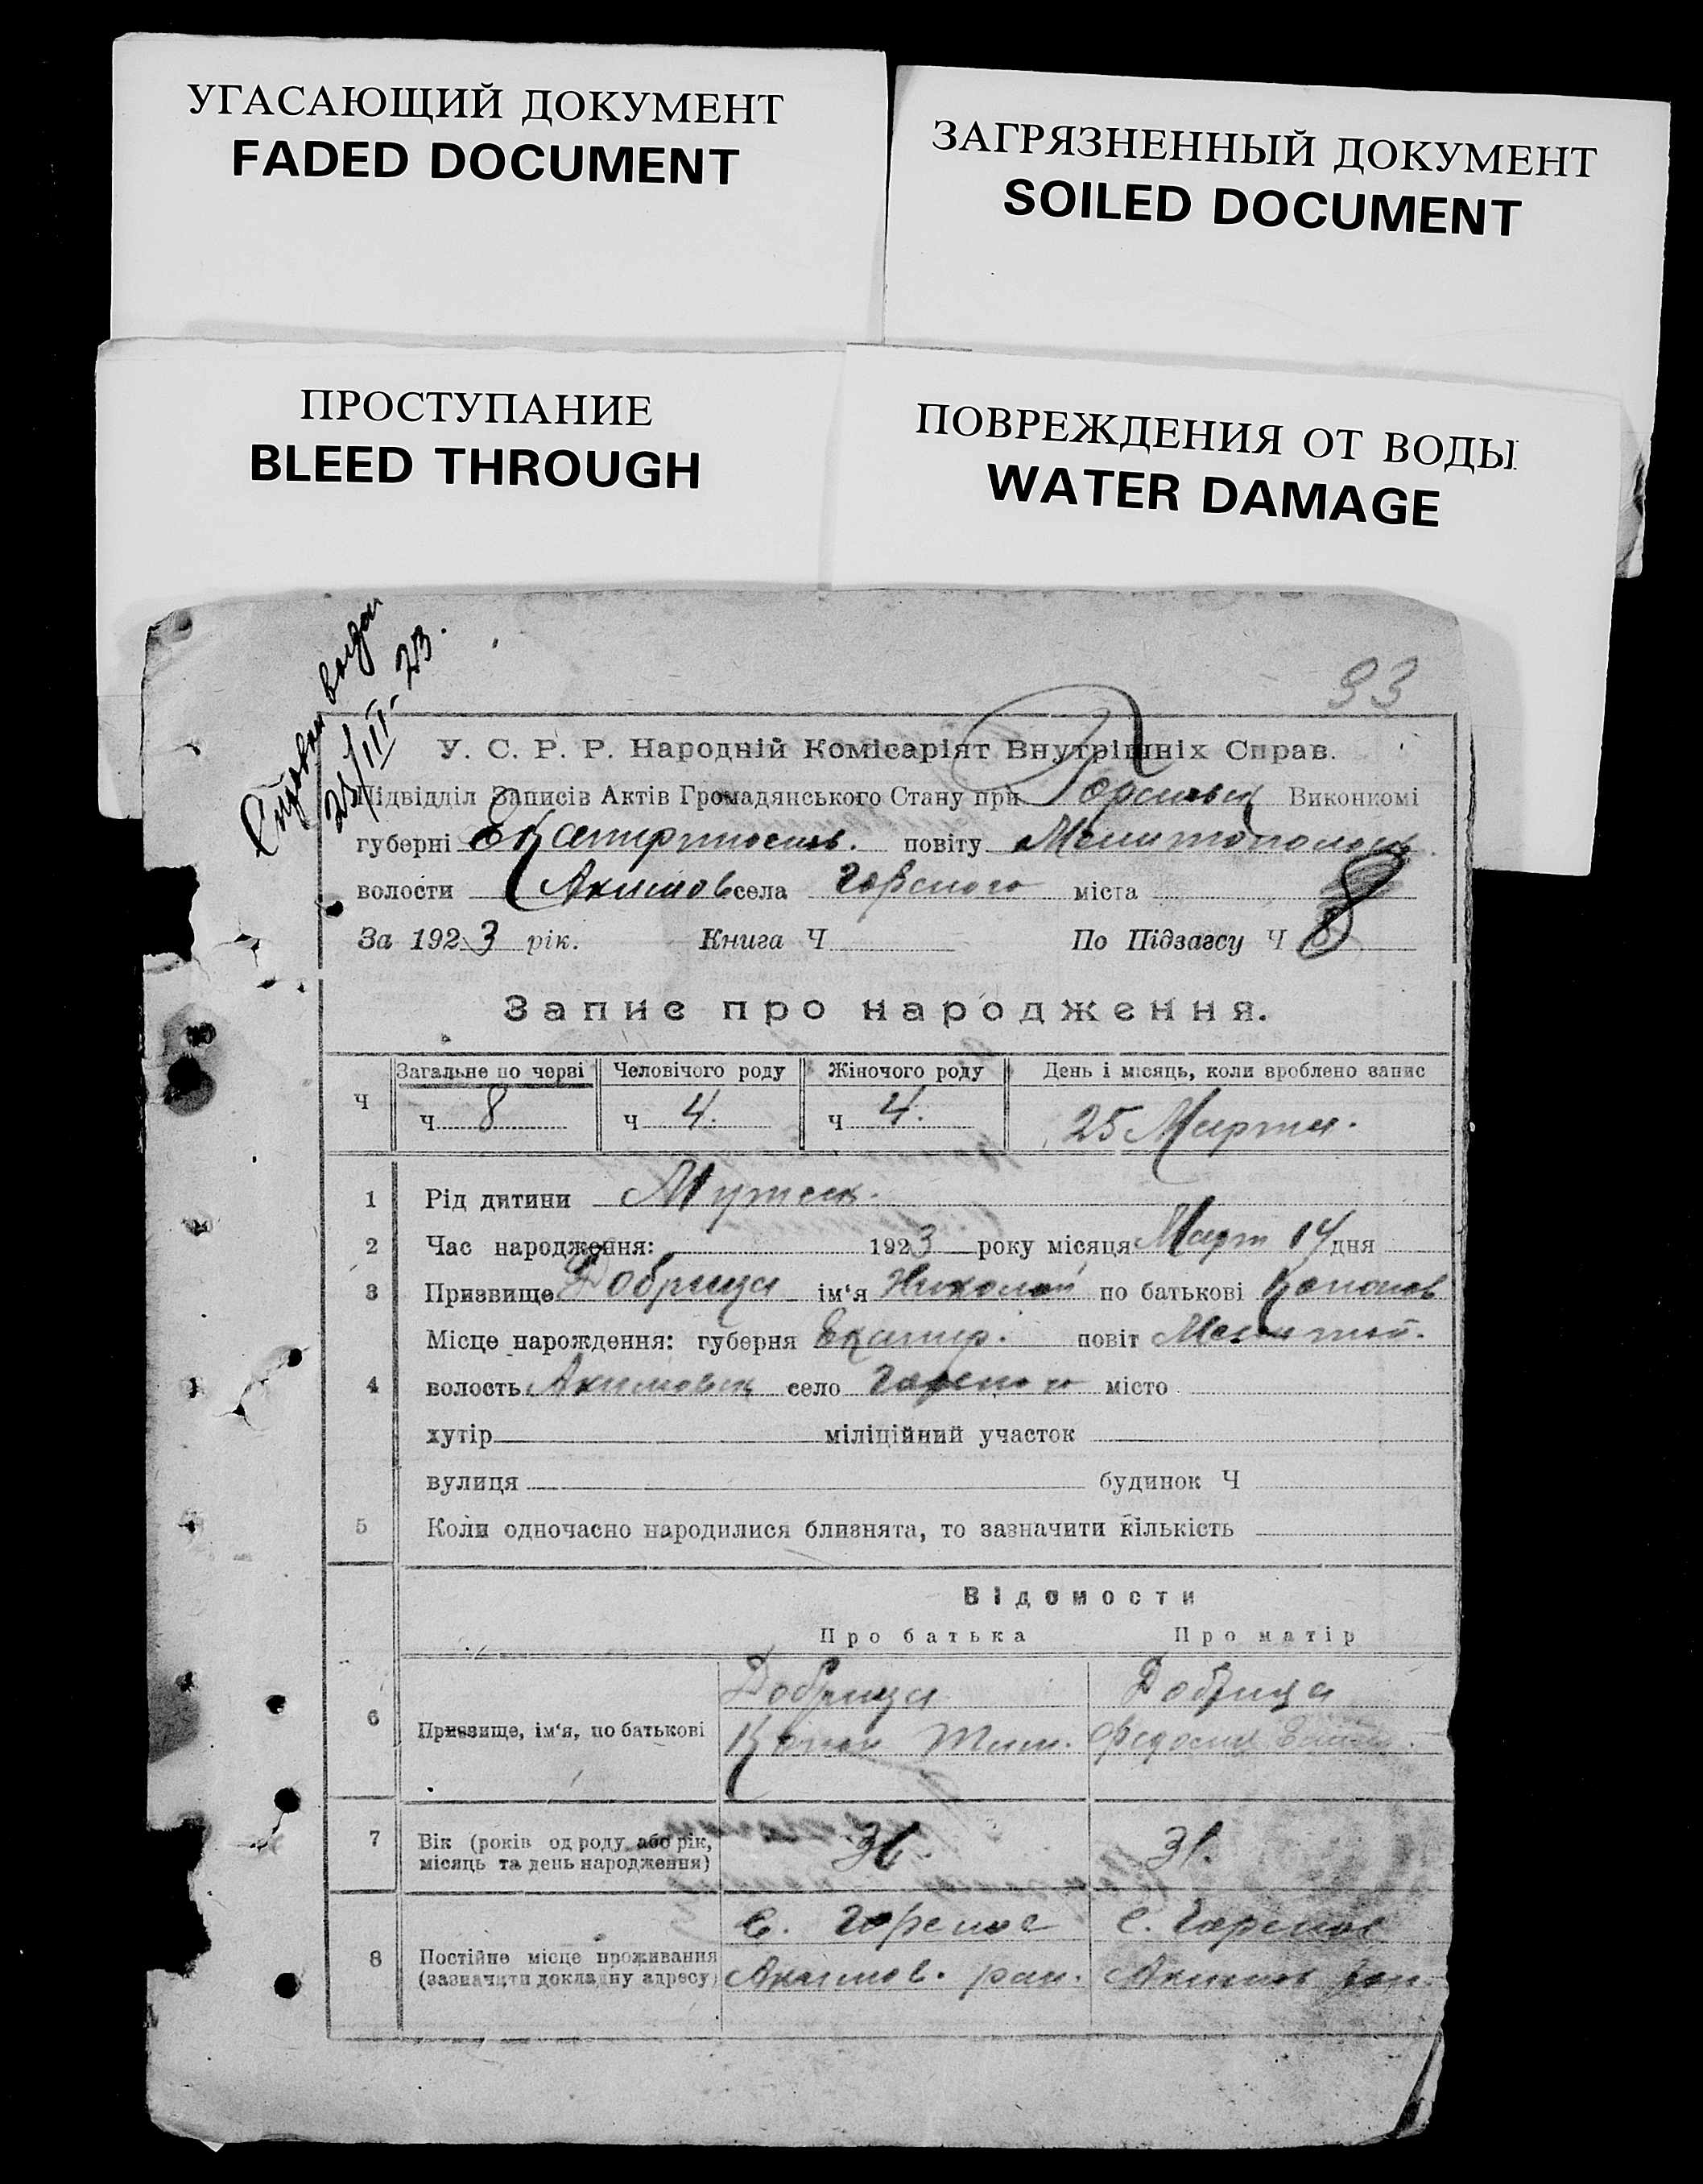 УГАСАЮЩИЙ ДОКУМЕНТ
FADED DOCUMENT
ЗАГРЯЗНЕННЫЙ ДОКУМЕНТ
SOILED DOCUMENT
ПРОСТУПАНИЕ
BLEED THROUGH
ПОВРЕЖДЕНИЯ ОТ ВОДЫ
WATER DAMAGE
93
У. С. Р. Р. Народній Комісаріят Внутрішніх Справ.
Підвідділ Записів Актів Громадянського Стану при Виконкомі
губерні повіту
волости Акимов села міста
За 1923 рік. Книга Ч По Підзагсу Ч 8
Запис про народження.
Загальне по черзі Человічого роду Жіночого роду День і місяць, коли зроблено запис
Ч ч 8 ч 4. ч 4. 25 Марта.
1 Рід дитини Мужск.
2 Час народження: 1923 року місяця Март 14 дня
3 Призвище Добрица ім‘я Николай по батькові
Місце нарождення: губерня Екатер. повіт
4 волость село место місто
хутір міліційний участок
вулиця будинок Ч
5 Коли одночасно народилися близнята, то зазначити кількість
Відомости
Про батька Про матір
Добрица Добрица
6 Призвище, ім‘я, по батькові
7 Вік (років од роду або рік, місяць та день народження) 31.
8 Постійне місце проживання (зазначити докладну адресу) с. с.
Акимов. рай. Акимов рай.